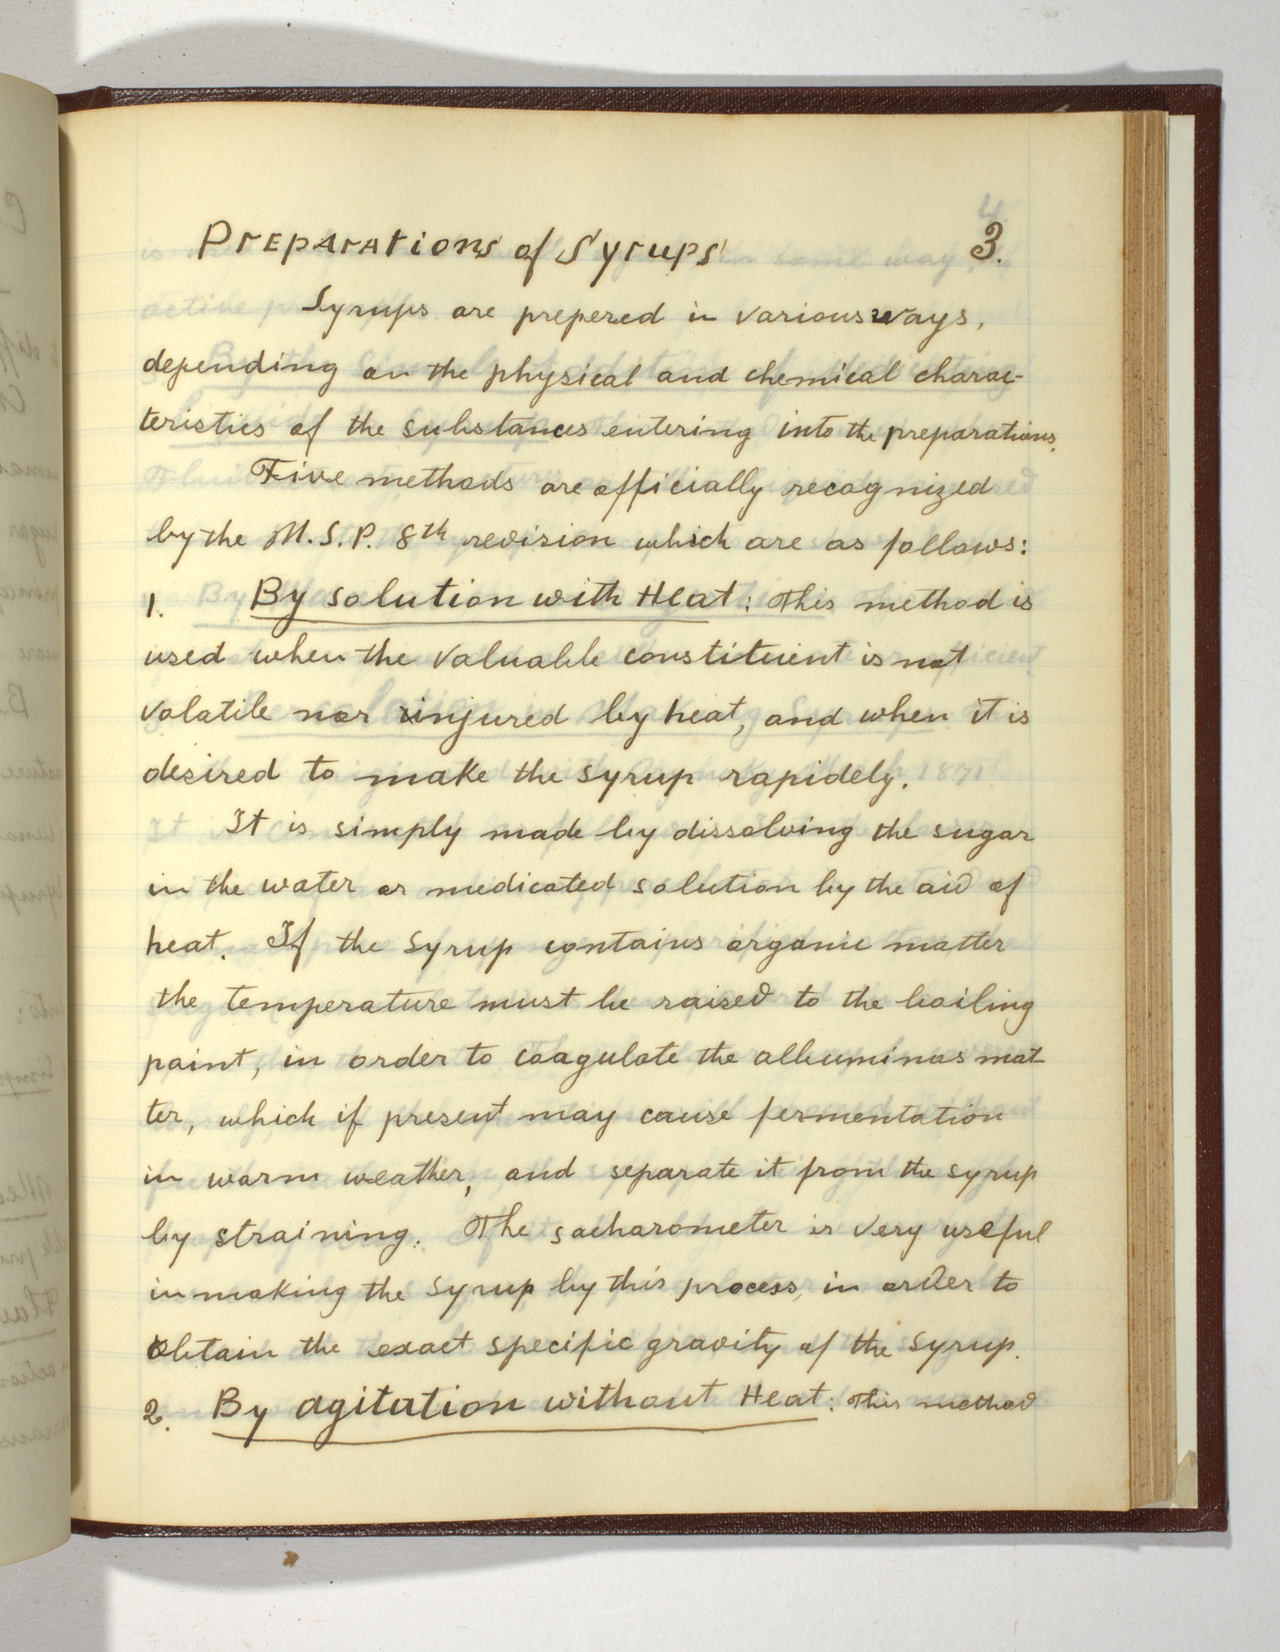 Preparations of Syrups 3.
Syrups are prepered in various ways,
depending on the physical and chemical charac-
teristics of the substances entering into the preparations.
Five methods are officially recognized
by the U.S.P. 8th revision which are as follows:
1. By solution with Heat: This method is
used when the valuable constituent is not
volatile nor injured by heat, and when it is
desired to make the syrup rapidely.
It is simply made by dissolving the sugar
in the water or medicated solution by the aid of
heat. If the syrup contains organic matter
the temperature must be raised to the boiling
point, in order to coagulate the albuminos mat
ter, which if present may cause fermentation
in warm weather, and separate it from the syrup
by straining. The sacharometer is very useful
in making the syrup by this process, in order to
obtain the exact specific gravity of the syrup.
2. By agitation without Heat: This method